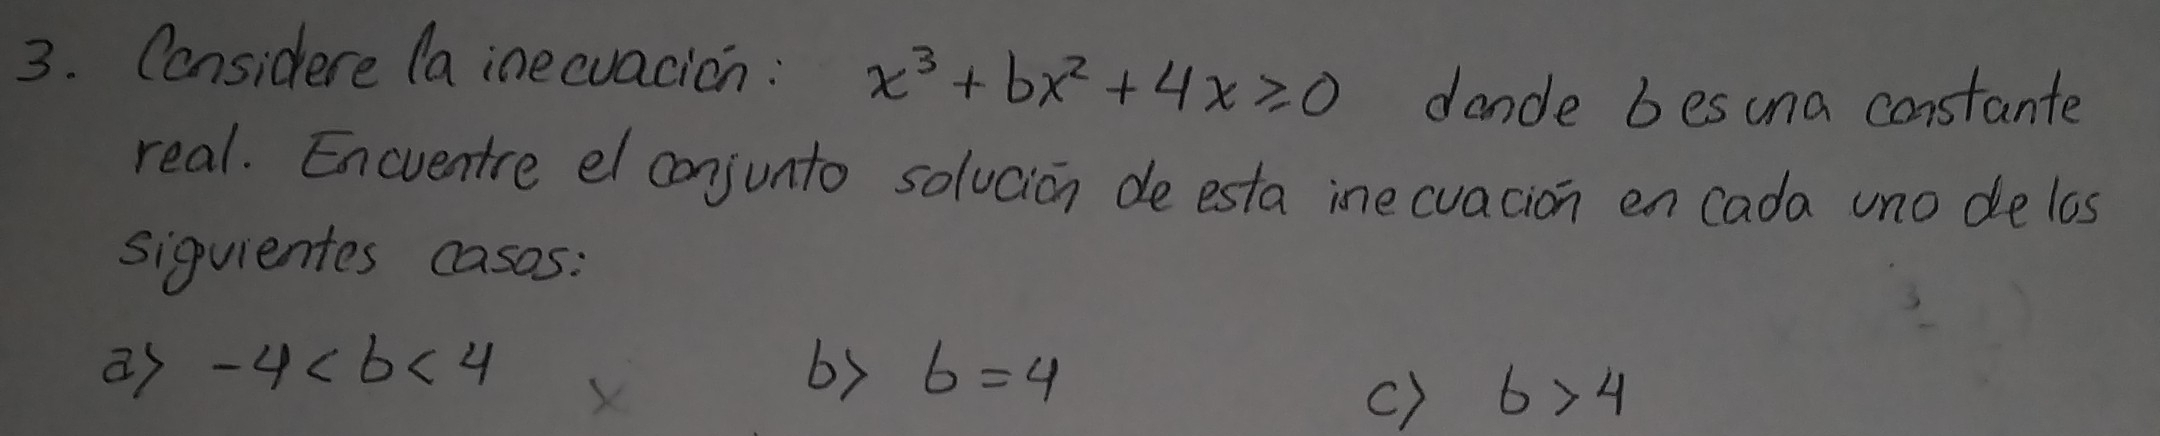 3. Considere la inecuación: x³ + bx² + 4x ≥ 0 donde b es una constante
real. Encuentre el conjunto solución de esta inecuación en cada uno de los
siguientes casos:
a) -4 < b < 4 b) b = 4 c) b > 4